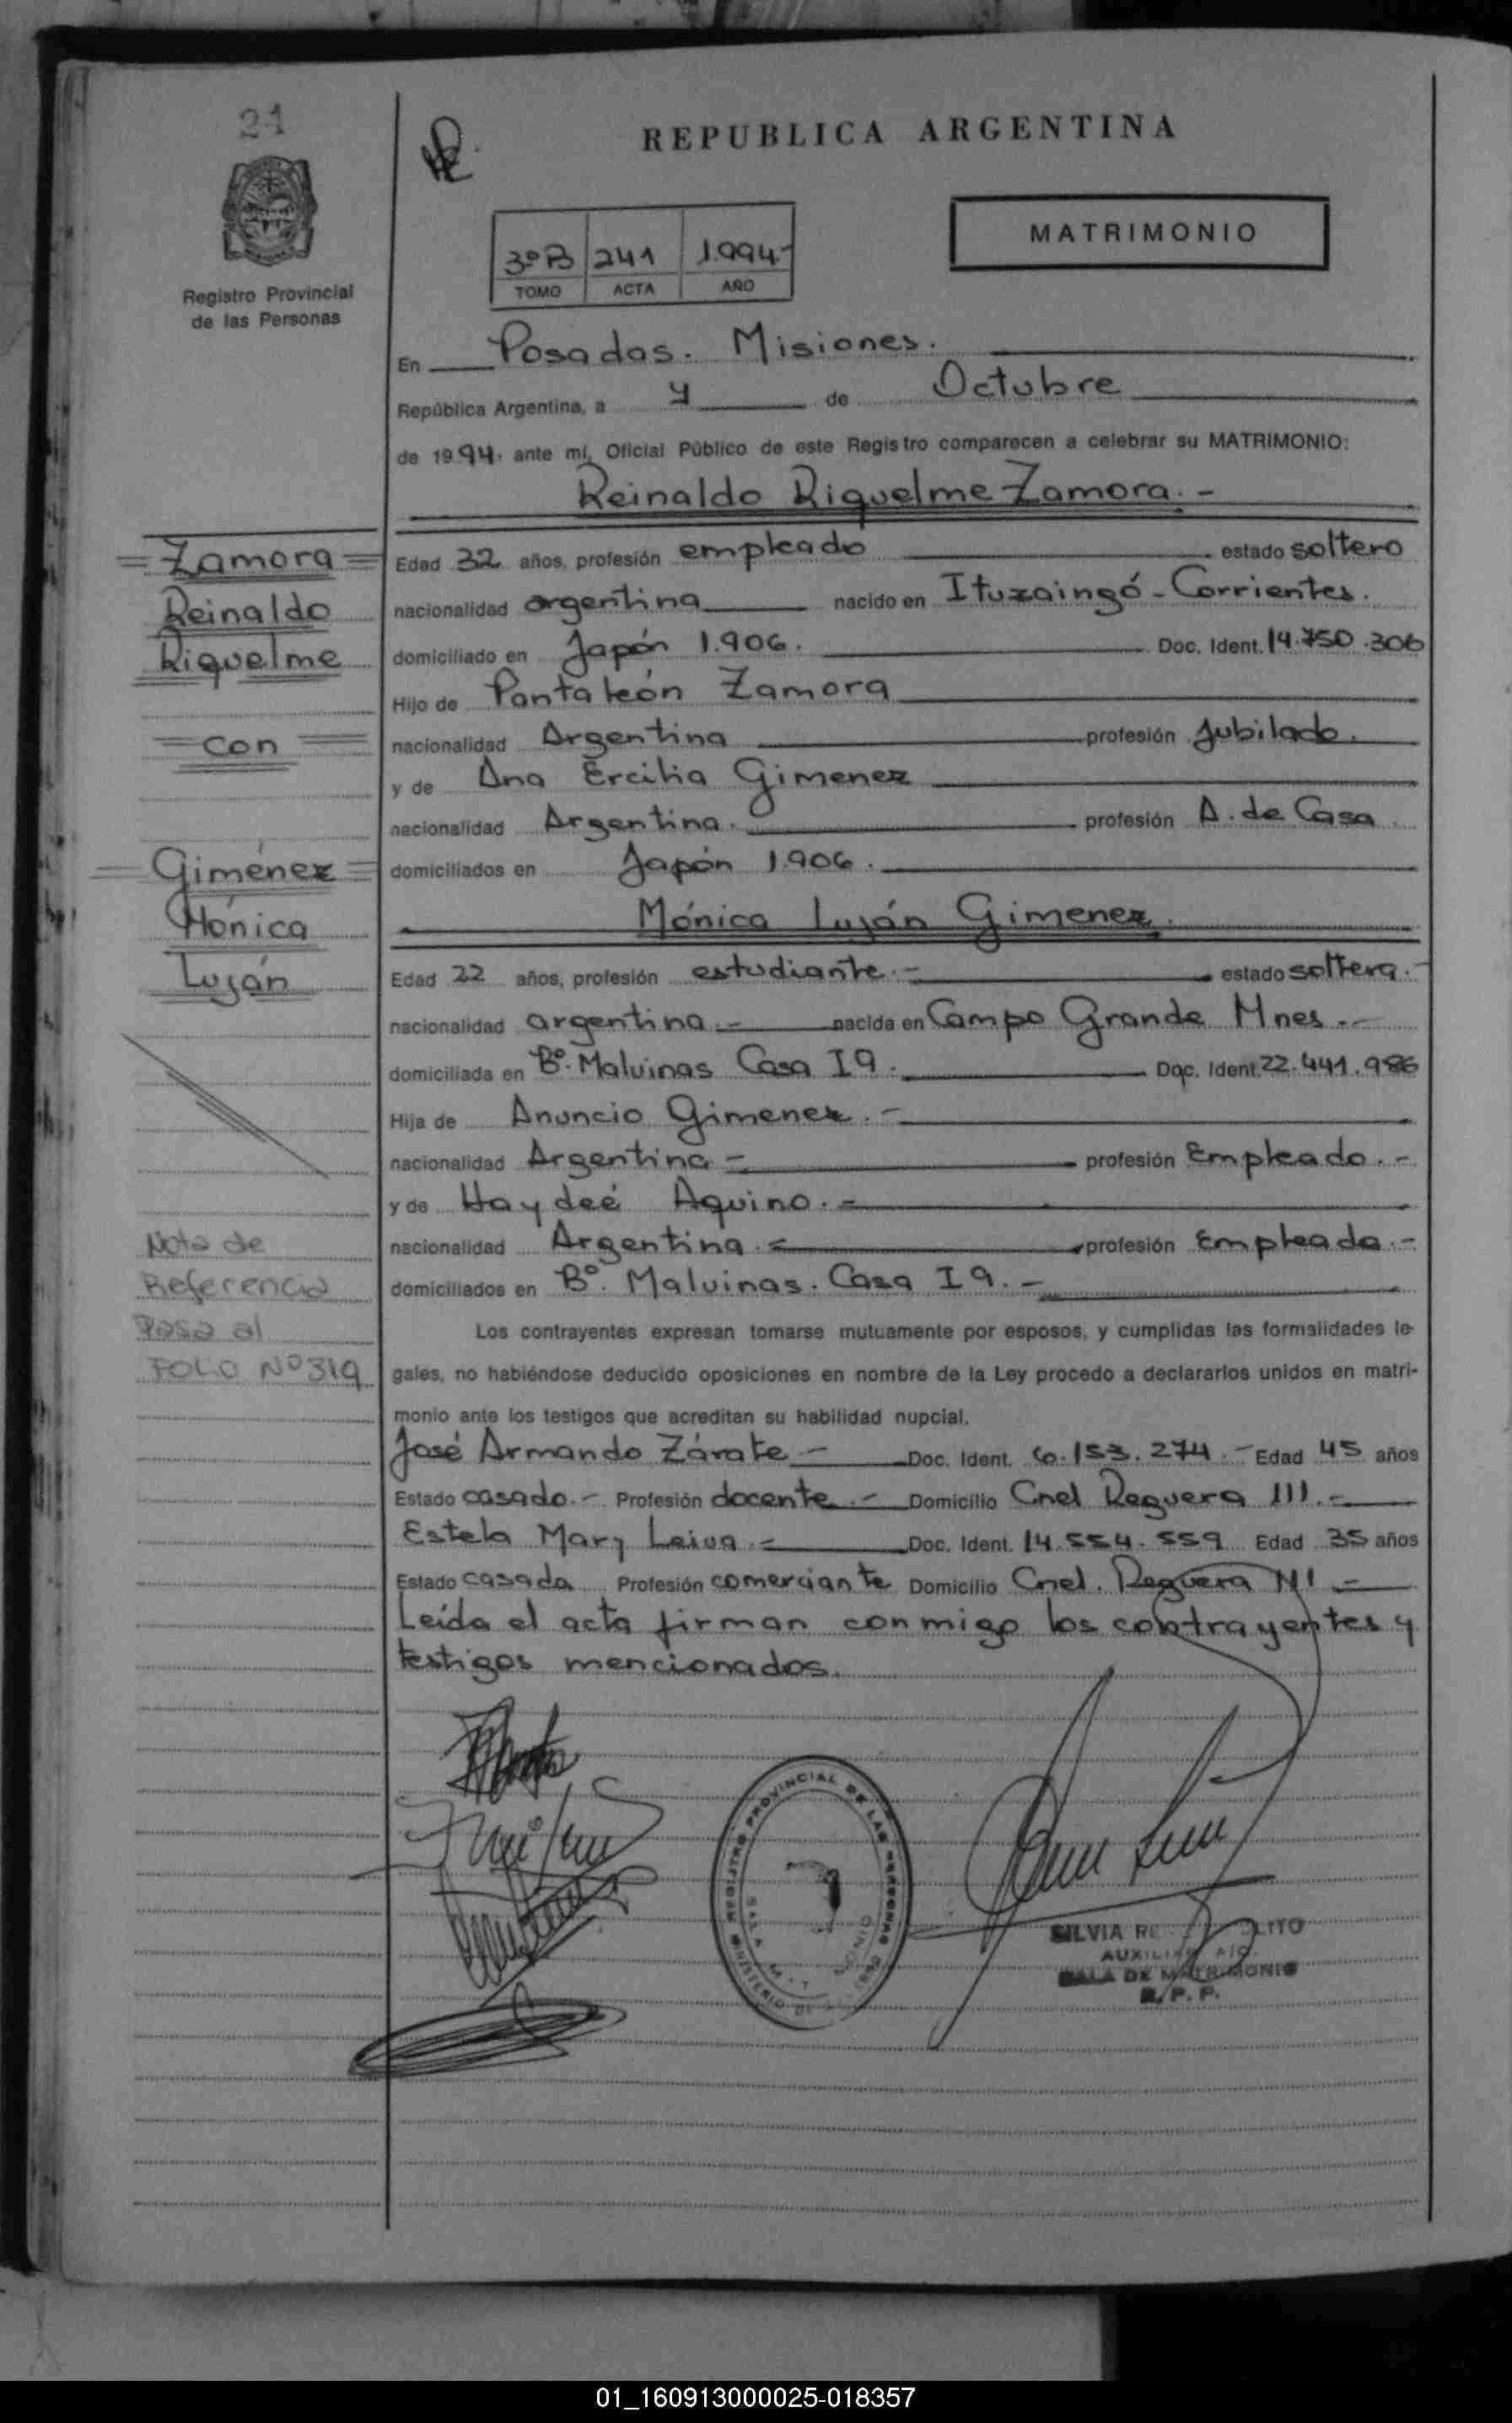 21
REPUBLICA ARGENTINA
MATRIMONIO
3º B 241 1.994.-
TOMO ACTA AÑO
Registro Provincial
de las Personas
En Posadas. Misiones.
República Argentina, a 4 de Octubre
de 1994. ante mí, Oficial Público de este Registro comparecen a celebrar su MATRIMONIO:
Reinaldo Riquelme Zamora. -
Zamora
Reinaldo
Riquelme
con
Giménez
Mónica
Luján
Edad 32 años, profesión empleado estado soltero
nacionalidad argentina nacido en Ituzaingó - Corrientes.
domiciliado en Japón 1.906. Doc. Ident. 14.750.306
Hijo de Pantaleón Zamora
nacionalidad Argentina profesión Jubilado.
y de Ana Ercilia Gimenez
nacionalidad Argentina. profesión A. de Casa
domiciliados en Japón 1.906.
Mónica Luján Gimenez.
Edad 22 años, profesión estudiante. - estado soltera. -
nacionalidad argentina. - nacida en Campo Grande Mnes. -
domiciliada en Bº. Malvinas Casa 19. Doc. Ident. 22.441.986
Hija de Anuncio Gimenez. -
nacionalidad Argentina - profesión Empleado. -
y de Haydeé Aquino. -
nacionalidad Argentina. - profesión Empleada. -
domiciliados en Bº. Malvinas. Casa 19. -
Nota de
Referencia
Pasa al
FOLIO Nº 319
Los contrayentes expresan tomarse mutuamente por esposos, y cumplidas las formalidades le-
gales, no habiéndose deducido oposiciones en nombre de la Ley procedo a declararlos unidos en matri-
monio ante los testigos que acreditan su habilidad nupcial.
José Armando Zárate - Doc. Ident. 6.153.274. - Edad 45 años
Estado casado. - Profesión docente. - Domicilio Cnel Reguera 111. -
Estela Mary Leiva. - Doc. Ident. 14.554.559 Edad 35 años
Estado casada Profesión comerciante Domicilio Cnel. Reguera 111 -
Leída el acta firman conmigo los contrayentes y
testigos mencionados.
REGISTRO PROVINCIAL DE LAS PERSONAS
SALA
MINISTERIO DE
SILVIA
AUXILIAR A/C.
SALA DE MATRIMONIO
R. P. P.
01_160913000025-018357